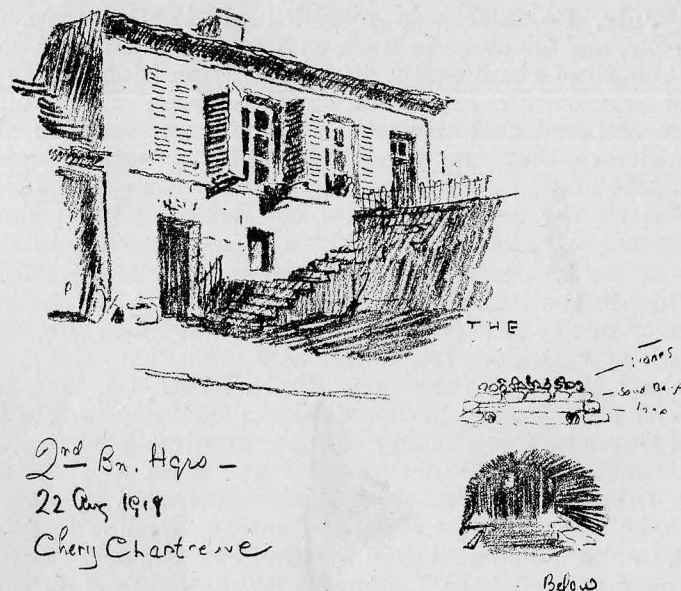 THE
Stones
Sand Bags
2nd Bn. Hqrs -
22 Aug 1918
Chery Chartreuve
Below